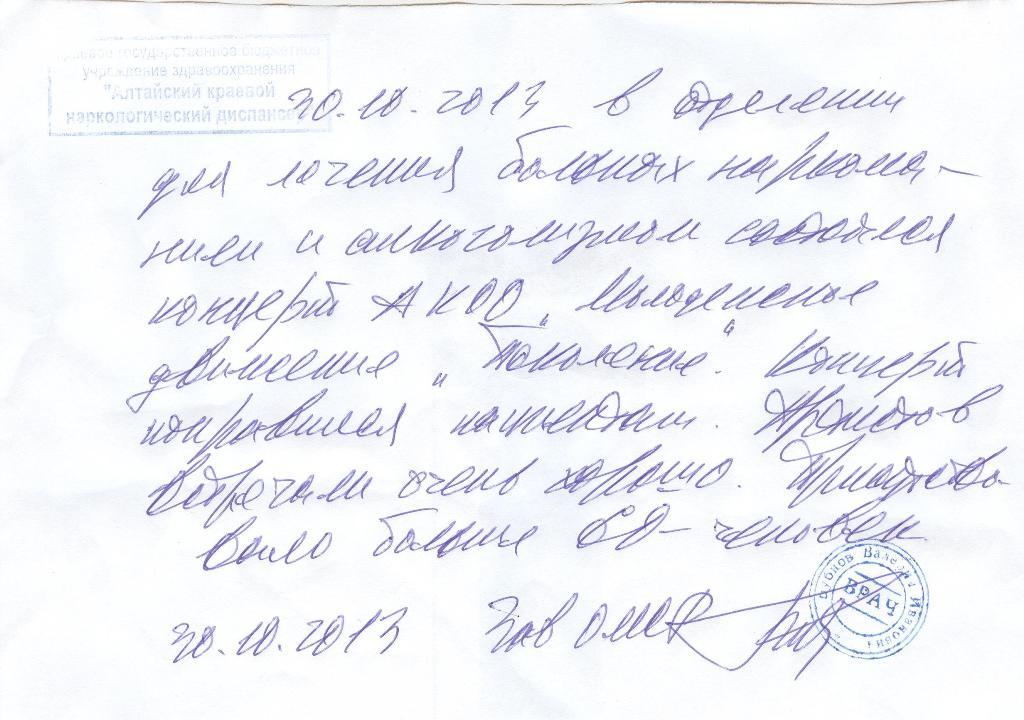 Краевое государственное бюджетное
учреждение здравоохранения
"Алтайский краевой
наркологический диспансер
30.10.2013 в отделении
для лечения больных наркома-
нией и алкоголизмом состоялся
концерт АКОО „Молодежное
движение „Поколение". Концерт
понравился пациентам. Артистов
встречали очень хорошо. Присутство-
вало больше 60 человек
30.10.2013 Зав ОМР
Бубнов Валерий Иванович
ВРАЧ